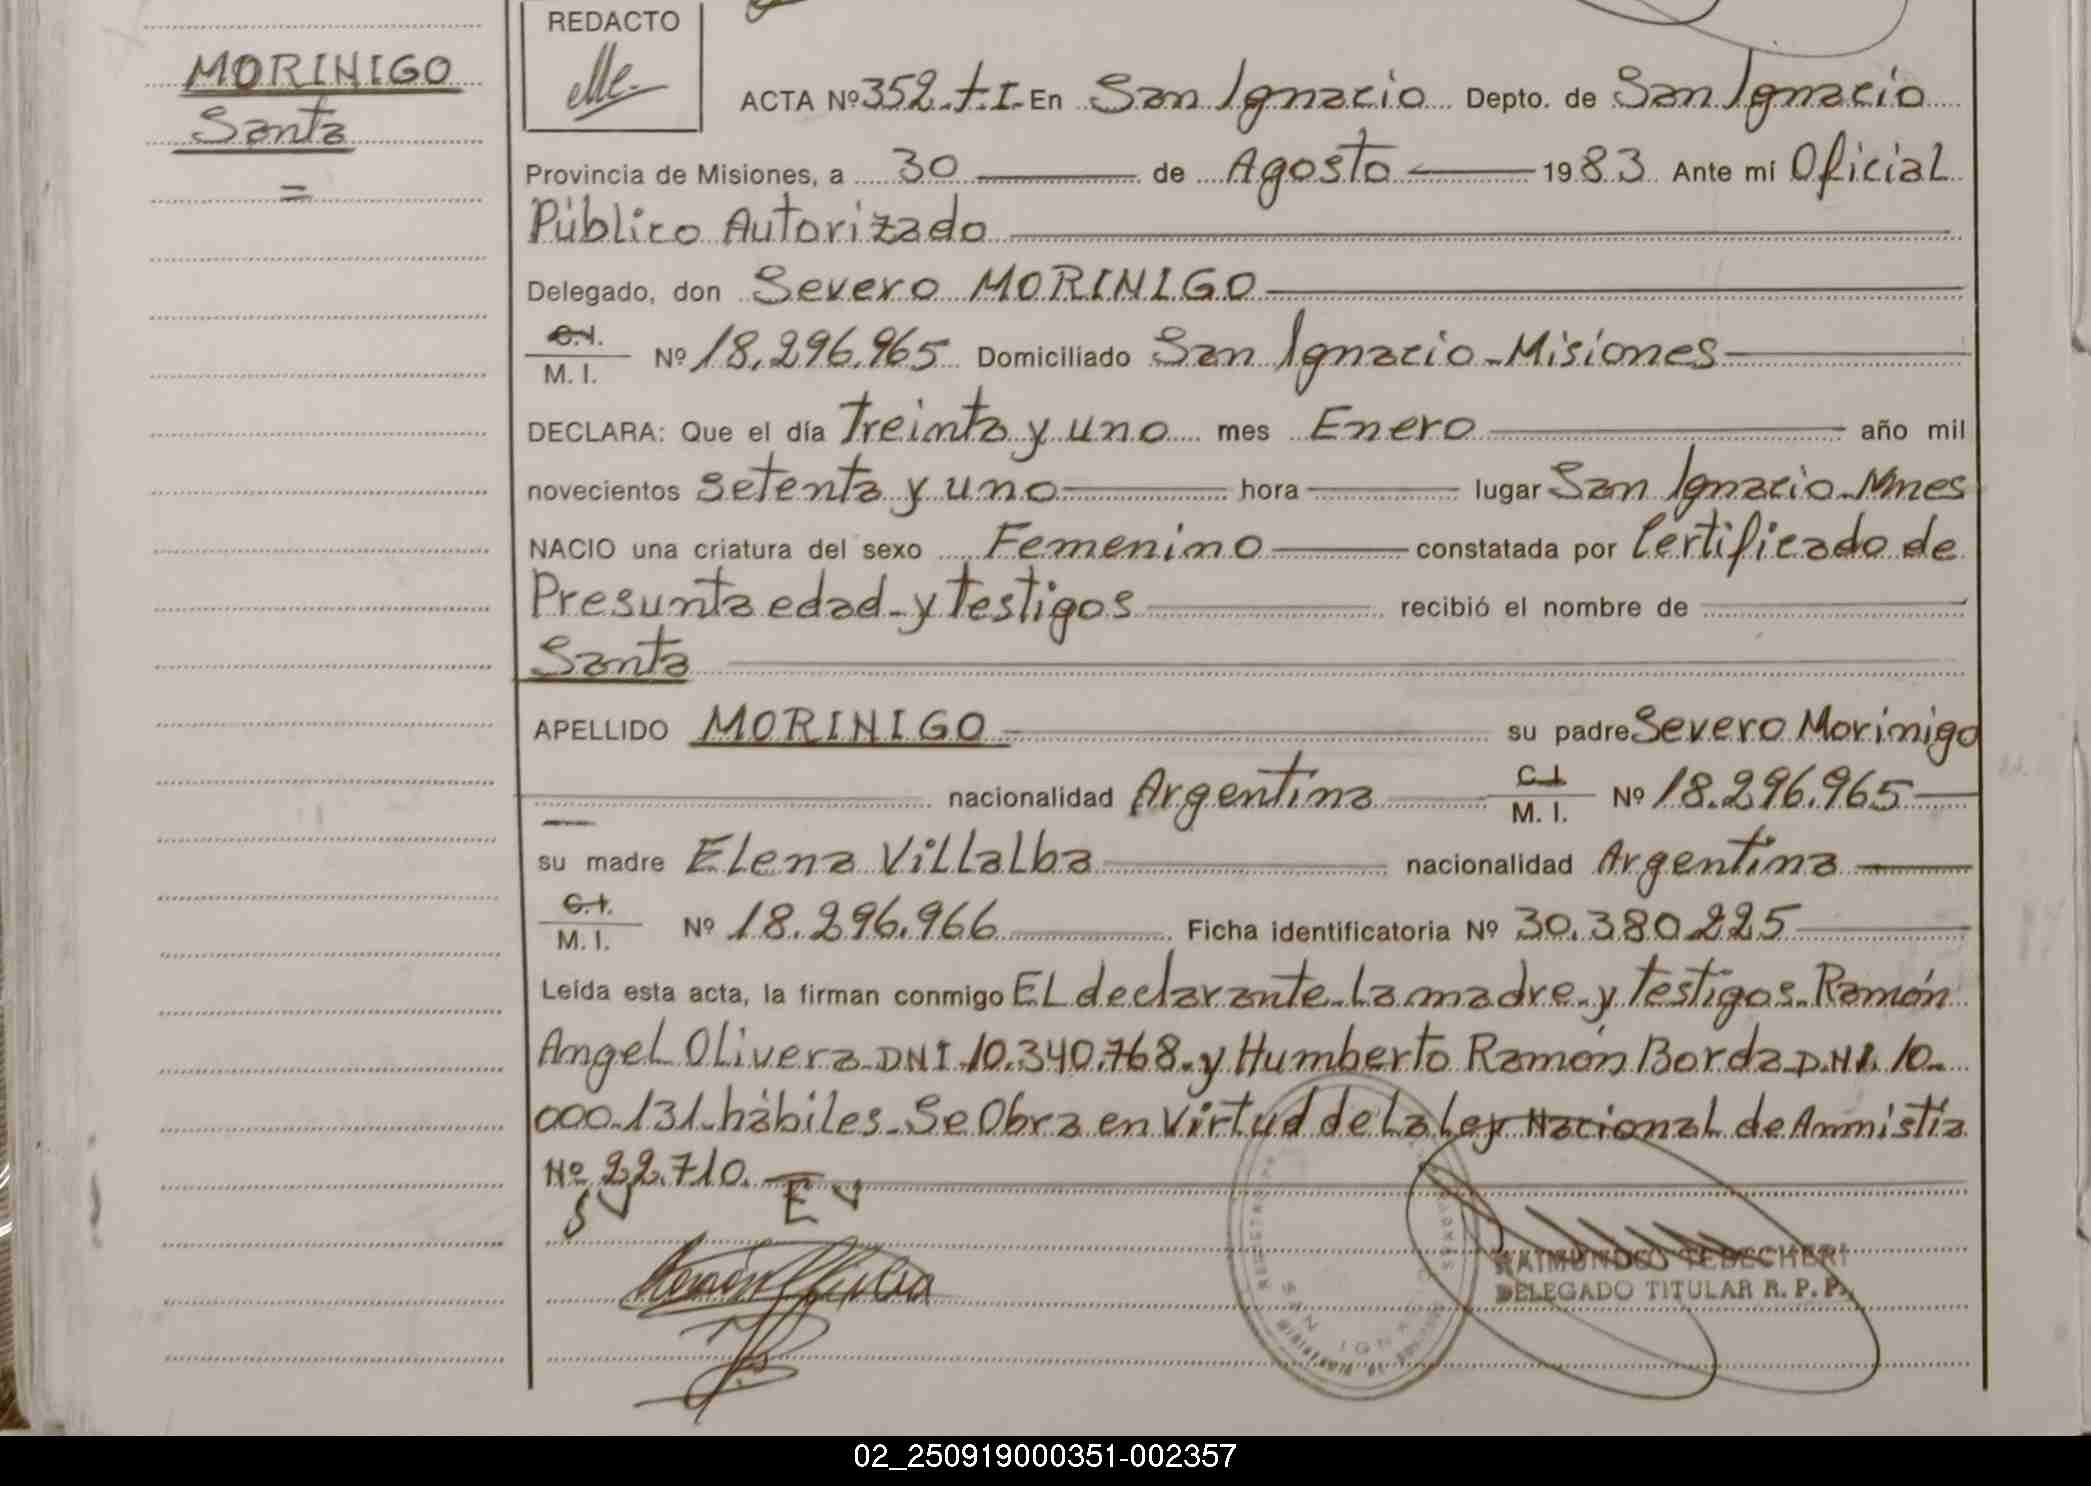 MORINIGO
Santa
=
REDACTO
ACTA Nº 352. t. I. En San Ignacio Depto. de San Ignacio
Provincia de Misiones, a 30 de Agosto 1983 Ante mi Oficial
Público Autorizado
Delegado, don Severo MORINIGO
C.I.
M. I. Nº 18.296.965 Domiciliado San Ignacio - Misiones
DECLARA: Que el día Treinta y uno mes Enero año mil
novecientos setenta y uno hora lugar San Ignacio - Mnes
NACIO una criatura del sexo Femenino constatada por Certificado de
Presunta edad - y testigos recibió el nombre de
Santa
APELLIDO MORINIGO su padre Severo Morinigo
nacionalidad Argentina C.I. M. I. Nº 18.296.965
su madre Elena Villalba nacionalidad Argentina
C.I.
M. I. Nº 18.296.966 Ficha identificatoria Nº 30.380.225
Leída esta acta, la firman conmigo El declarante - La madre - y testigos - Ramón
Angel Olivera - DNI. 10.340.768 - y Humberto Ramón Borda - D.N.I. 10 -
000.131 - hábiles - Se Obra en Virtud de La Ley Nacional de Ammistía
Nº 22.710.
S V E V
RAIMUNDO
DELEGADO TITULAR R. P. P.
SAN IGNACIO
02_250919000351-002357